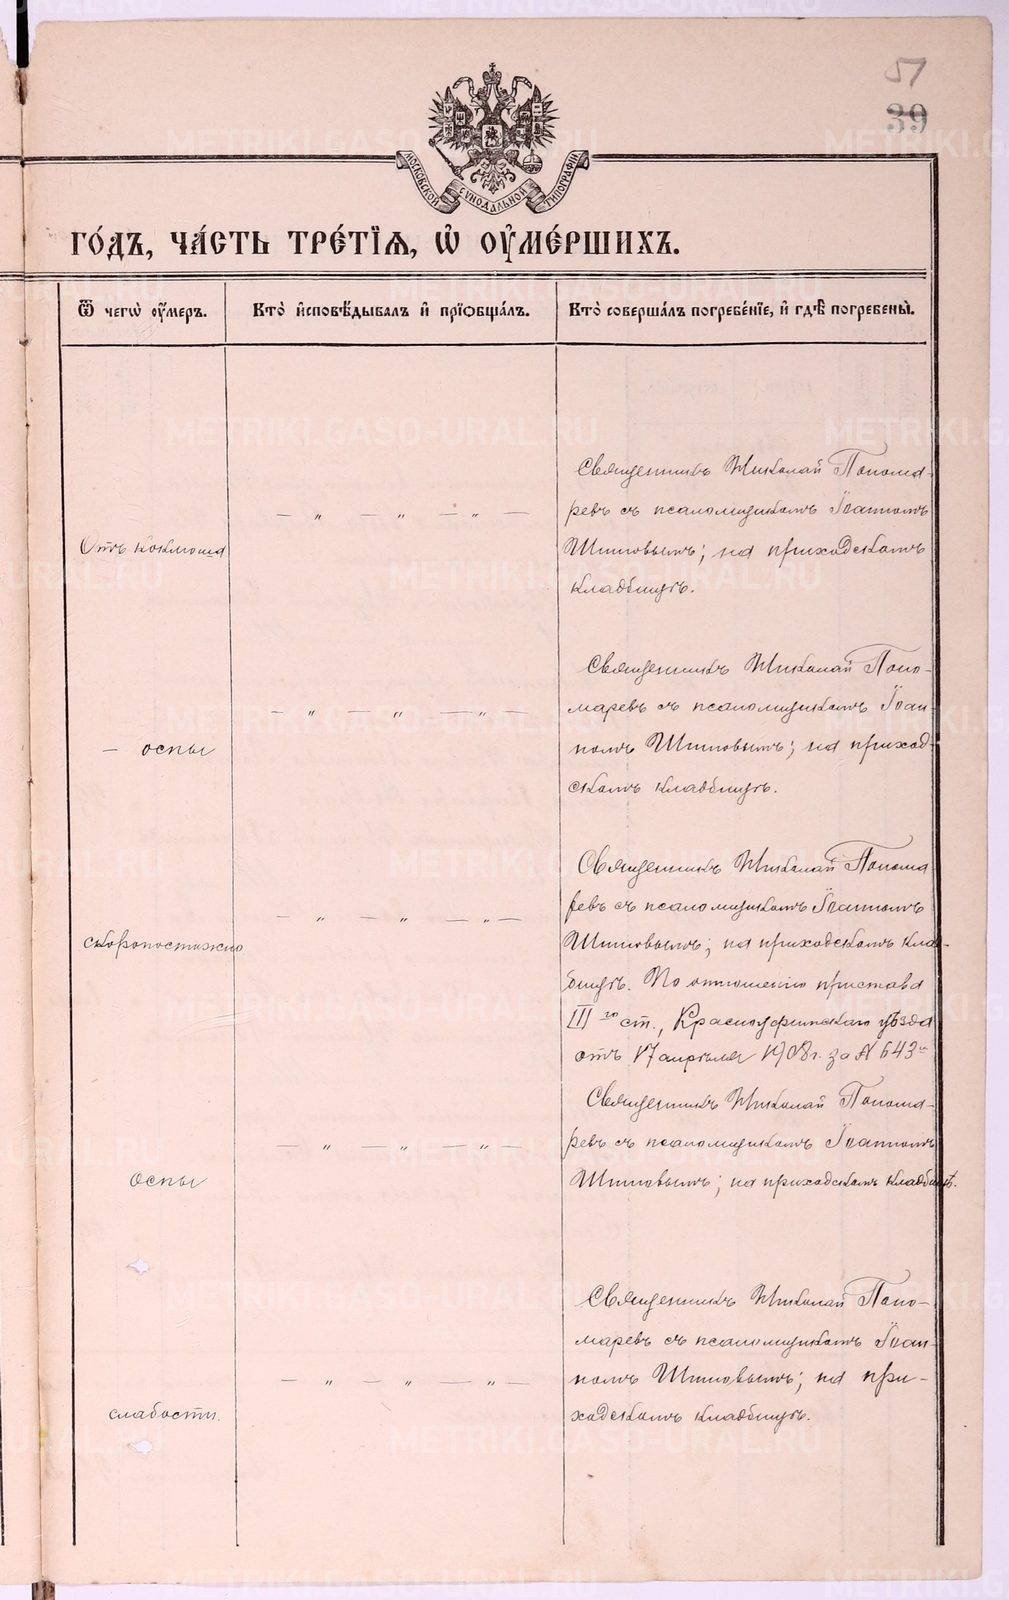 51
39
МОСКОВСКОЙ СѴНОДАЛЬНОЙ ТИПОГРАФІИ
ГО́ДЪ, ЧА́СТЬ ТРЕ́ТІѦ, Ѽ ОУ҆МЕ́РШИХЪ.
Ѿ чегѡ̀ оу҆́меръ.
Кто̀ и҆сповѣ́дывалъ и҆ прїѡбща́лъ.
Кто̀ соверша́лъ погребе́нїе, и҆ гдѣ̀ погребены̀.
Священникъ Николай Понома-
— „ — „ — „ —
ревъ съ псаломщикомъ Іоанномъ
Отъ коклюша
Шиповымъ; на приходскомъ
кладбищѣ.
Священникъ Николай Поно-
— „ — „ — „ —
маревъ съ псаломщикомъ Іоан-
— оспы
номъ Шиповымъ; на приход-
скомъ кладбищѣ.
Священникъ Николай Понома-
— „ — „ — „ —
ревъ съ псаломщикомъ Іоанномъ
скоропостижно
Шиповымъ; на приходскомъ клад-
бищѣ. По отношенію пристава
III го ст., Красноуфимскаго уѣзда
отъ 17 апрѣля 1908 г. за № 643
Священникъ Николай Понома-
— „ — „ — „ —
ревъ съ псаломщикомъ Іоанномъ
оспы
Шиповымъ; на приходскомъ кладбищѣ.
Священникъ Николай Поно-
маревъ съ псаломщикомъ Іоан-
— „ — „ — „ —
номъ Шиповымъ; на при-
слабости.
ходскомъ кладбищѣ.
METRIKI.GASO-URAL.RU